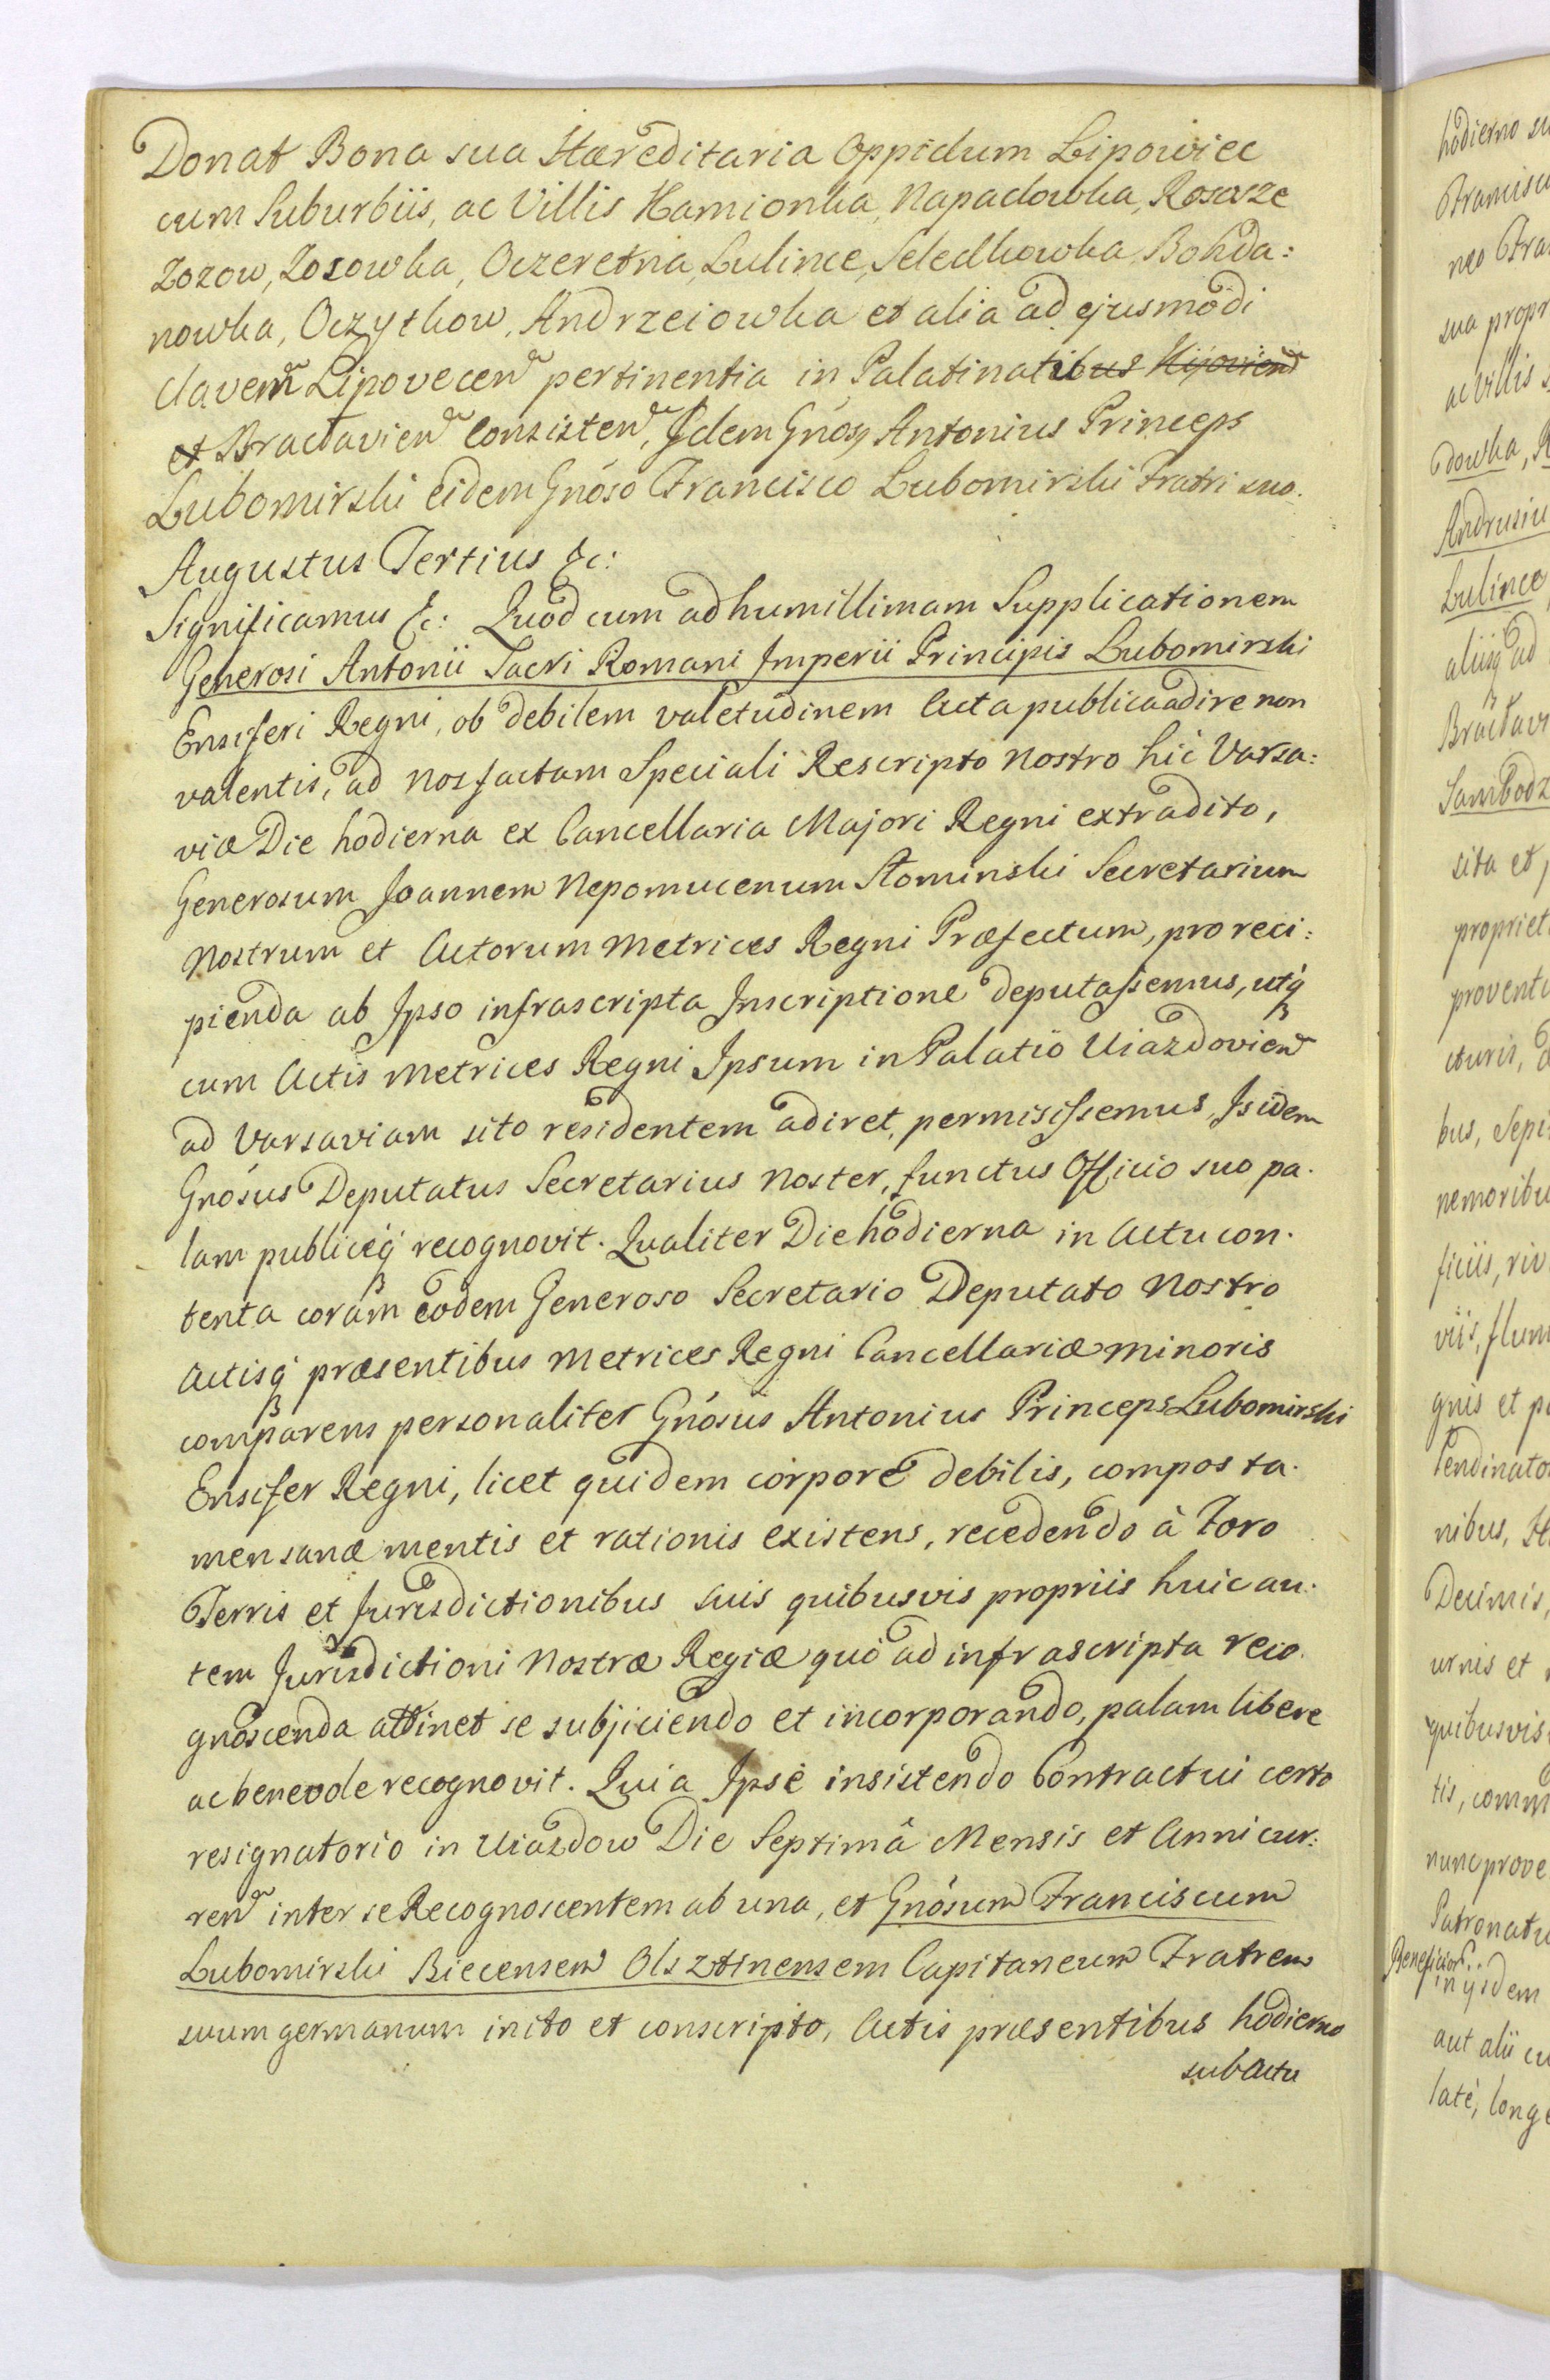 Donat Bona sua Hæreditaria Oppidum Lipowiec
cum Suburbiis, ac Villis Kamionka, Napadowka, Rososze
Zozow, Zozowka, Oczeretna, Lulince, Seledkowka, Bohda:
nowka, Oczytkow, Andrzeiowka et alia ad ejusmodi
Clavem Lipovecen pertinentia in Palatinatibus Kijovien
et Braclavien Consisten, Idem Gnosus Antonius Princeps
Lubomirski eidem Gnóso Francisco Lubomirski Fratri suo.
Augustus Tertius &c:
Significamus &c: Quod cum ad humillimam Supplicationem
Generosi Antonii Sacri Romani Imperii Principis Lubomirski
Ensiferi Regni, ob debilem valetudinem Acta publica adire non
valentis, ad nos factam Speciali Rescripto Nostro hic Varsa:
viæ Die hodierna ex Cancellaria Majori Regni extradito,
Generosum Joannem Nepomucenum Słominski Secretarium
Nostrum et Actorum Metrices Regni Præfectum, pro reci:
pienda ab Ipso infrascripta Inscriptione deputassemus, utq
cum Actis Metrices Regni Ipsum in Palatio Uiazdovien
ad Varsaviam sito residentem adiret, permisissemus, Isidem
Gnósus Deputatus Secretarius Noster, functus Officio suo pa.
lam publiceq recognovit. Qualiter Die hodierna in Actu con.
tenta coram eodem Generoso Secretario Deputato Nostro
Actisq præsentibus Metrices Regni Cancellariæ Minoris
comparens personaliter Gnósus Antonius Princeps Lubomirski
Ensifer Regni, licet quidem corpore debilis, compos ta.
men sanæ mentis et rationis existens, recedendo à Foro
Terris et Jurisdictionibus suis quibusvis propriis huic au.
tem Jurisdictioni Nostræ Regiæ quò ad infrascripta reco.
gnoscenda attinet se subjiciendo et iincorporando, palam libere
ac benevole recognovit. Quia Ipse insistendo Contractui certo
resignatorio in Uiazdow Die Septimâ Mensis et Anni cur:
ren inter se Recognoscentem ab una, et Gnósum Franciscum
Lubomirski Biecensem Olsztinensem Capitaneum Fratrem
suum germanum inito et conscripto, Actis præsentibus hodierno
sub actu
hodierno su
Francisc
neo Fra
sua propr
ac Villis
dowka, R
Andrusiu
Lulince
aliisq ad
Braclavi
Sambodz
sita et
propriet
provent
cturis,
bus, Sepi
nemoribu
ficiis, riv
viis, flum
gnis et p
Tendinato
nibus,
Decimis,
urnis et
quibusvis
tis, comm
nunc prove
Patronatu
Beneficior
in ijsdem
aut alii cu
latè, longe